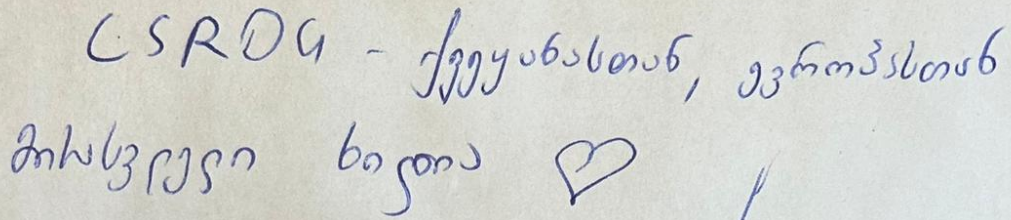 CSRDG - ქვეყანასთან, ევროპასთან
მისასვლელი ხიდია ♡